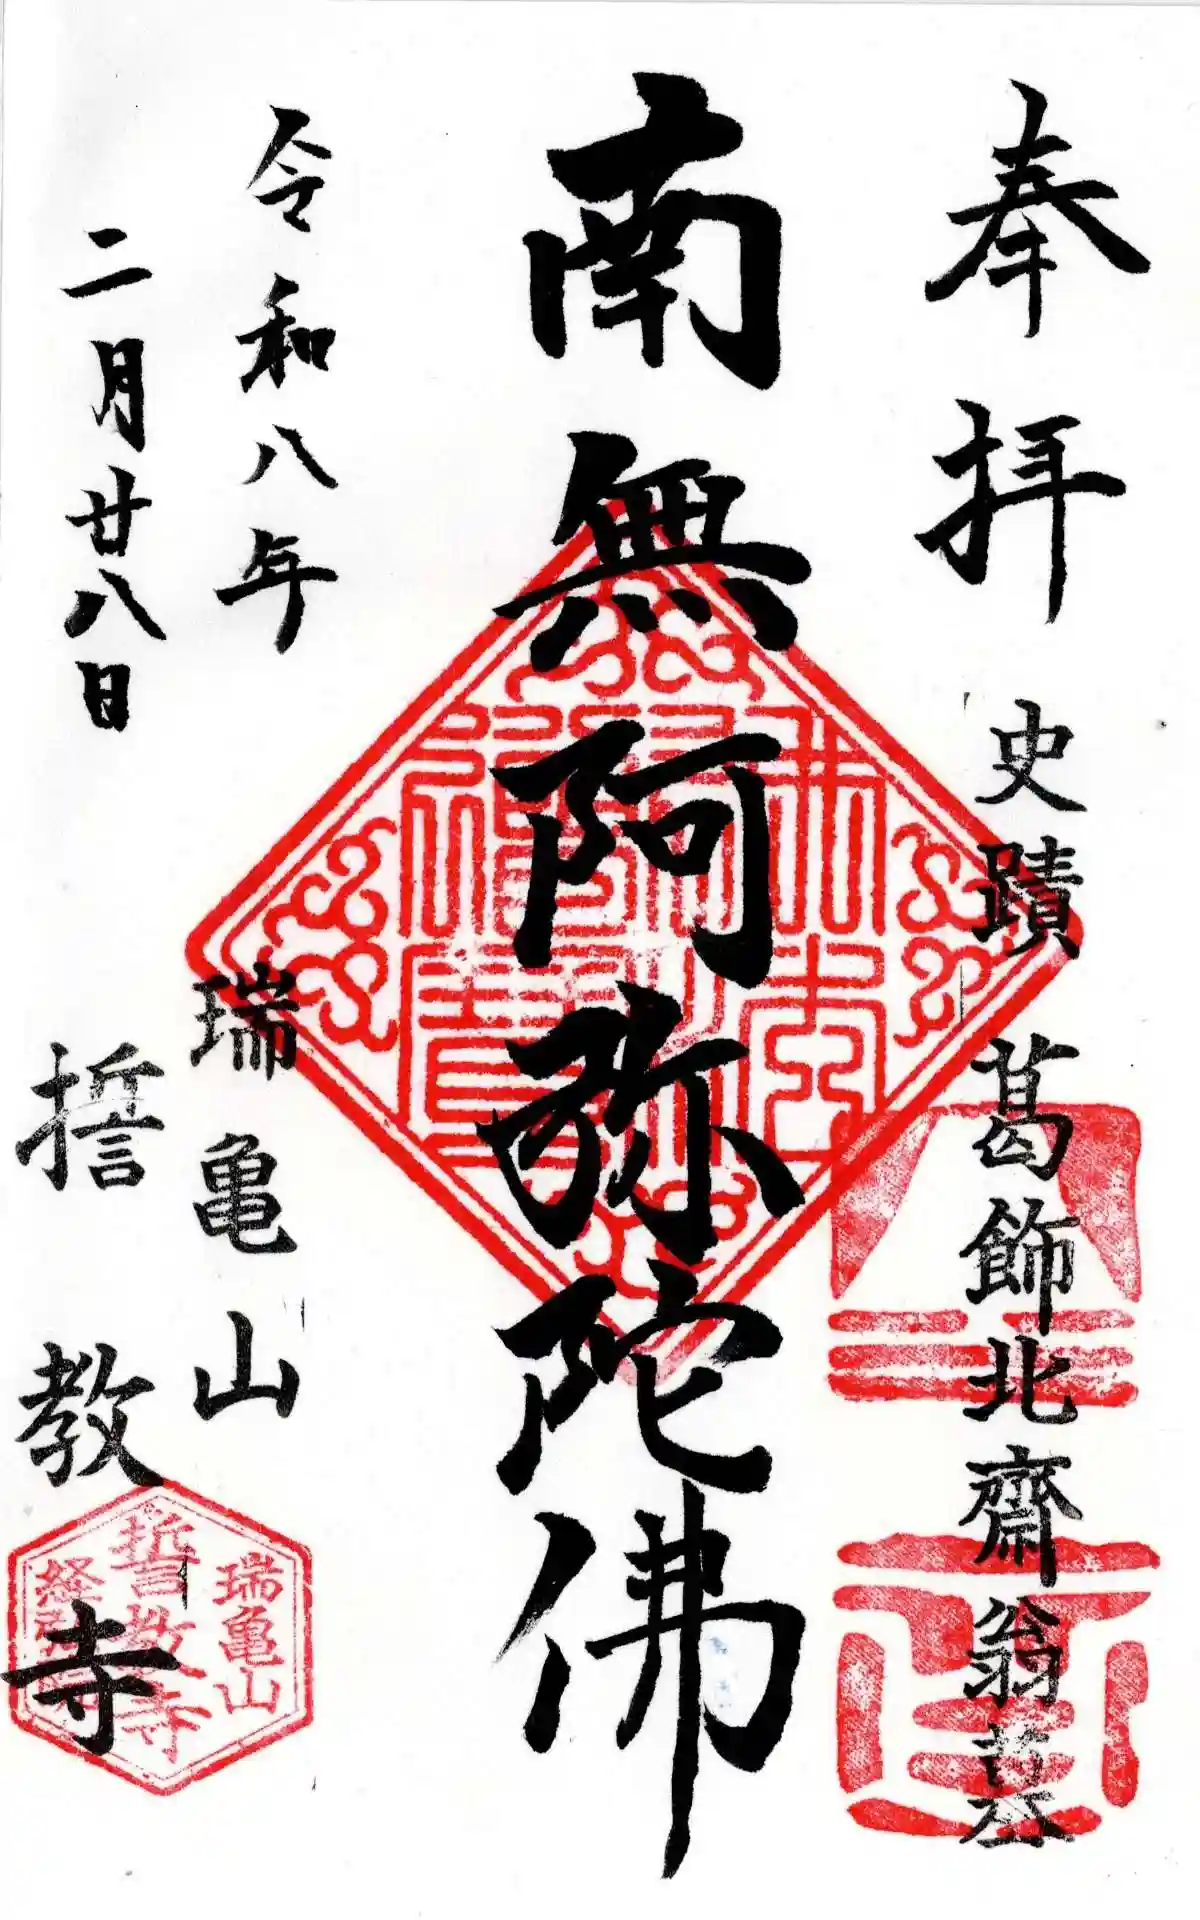 奉拝
史蹟 葛飾北齋翁墓
南無阿弥陀佛
令和八年
二月廿八日
瑞亀山
誓教寺
瑞亀山
誓教寺